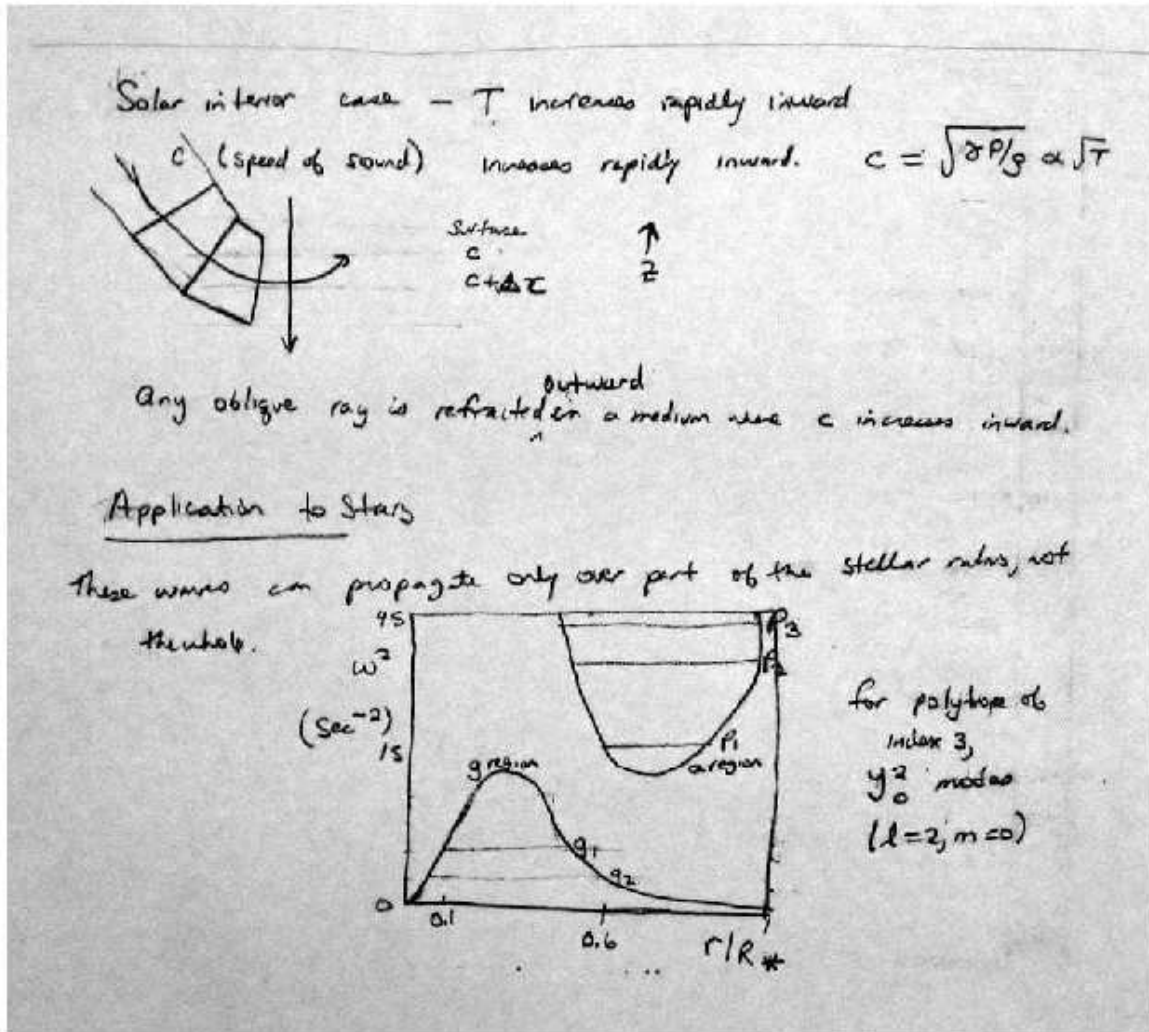 Solar interior case – T increases rapidly inward
C (speed of sound) increases rapidly inward. c = √(γP/ρ) ∝ √T
Surface
c
c + Δc
↑
z
outward
Any oblique ray is refracted in a medium where c increases inward.
Application to Stars
These waves can propagate only over part of the stellar radius, not
the whole.
45
ω²
(sec⁻²)
15
0
g region
g₁
g₂
P₃
P₂
P₁
a region
0.1
0.6
r/R*
for polytrope of
index 3,
y₀² modes
(l=2, m=0)